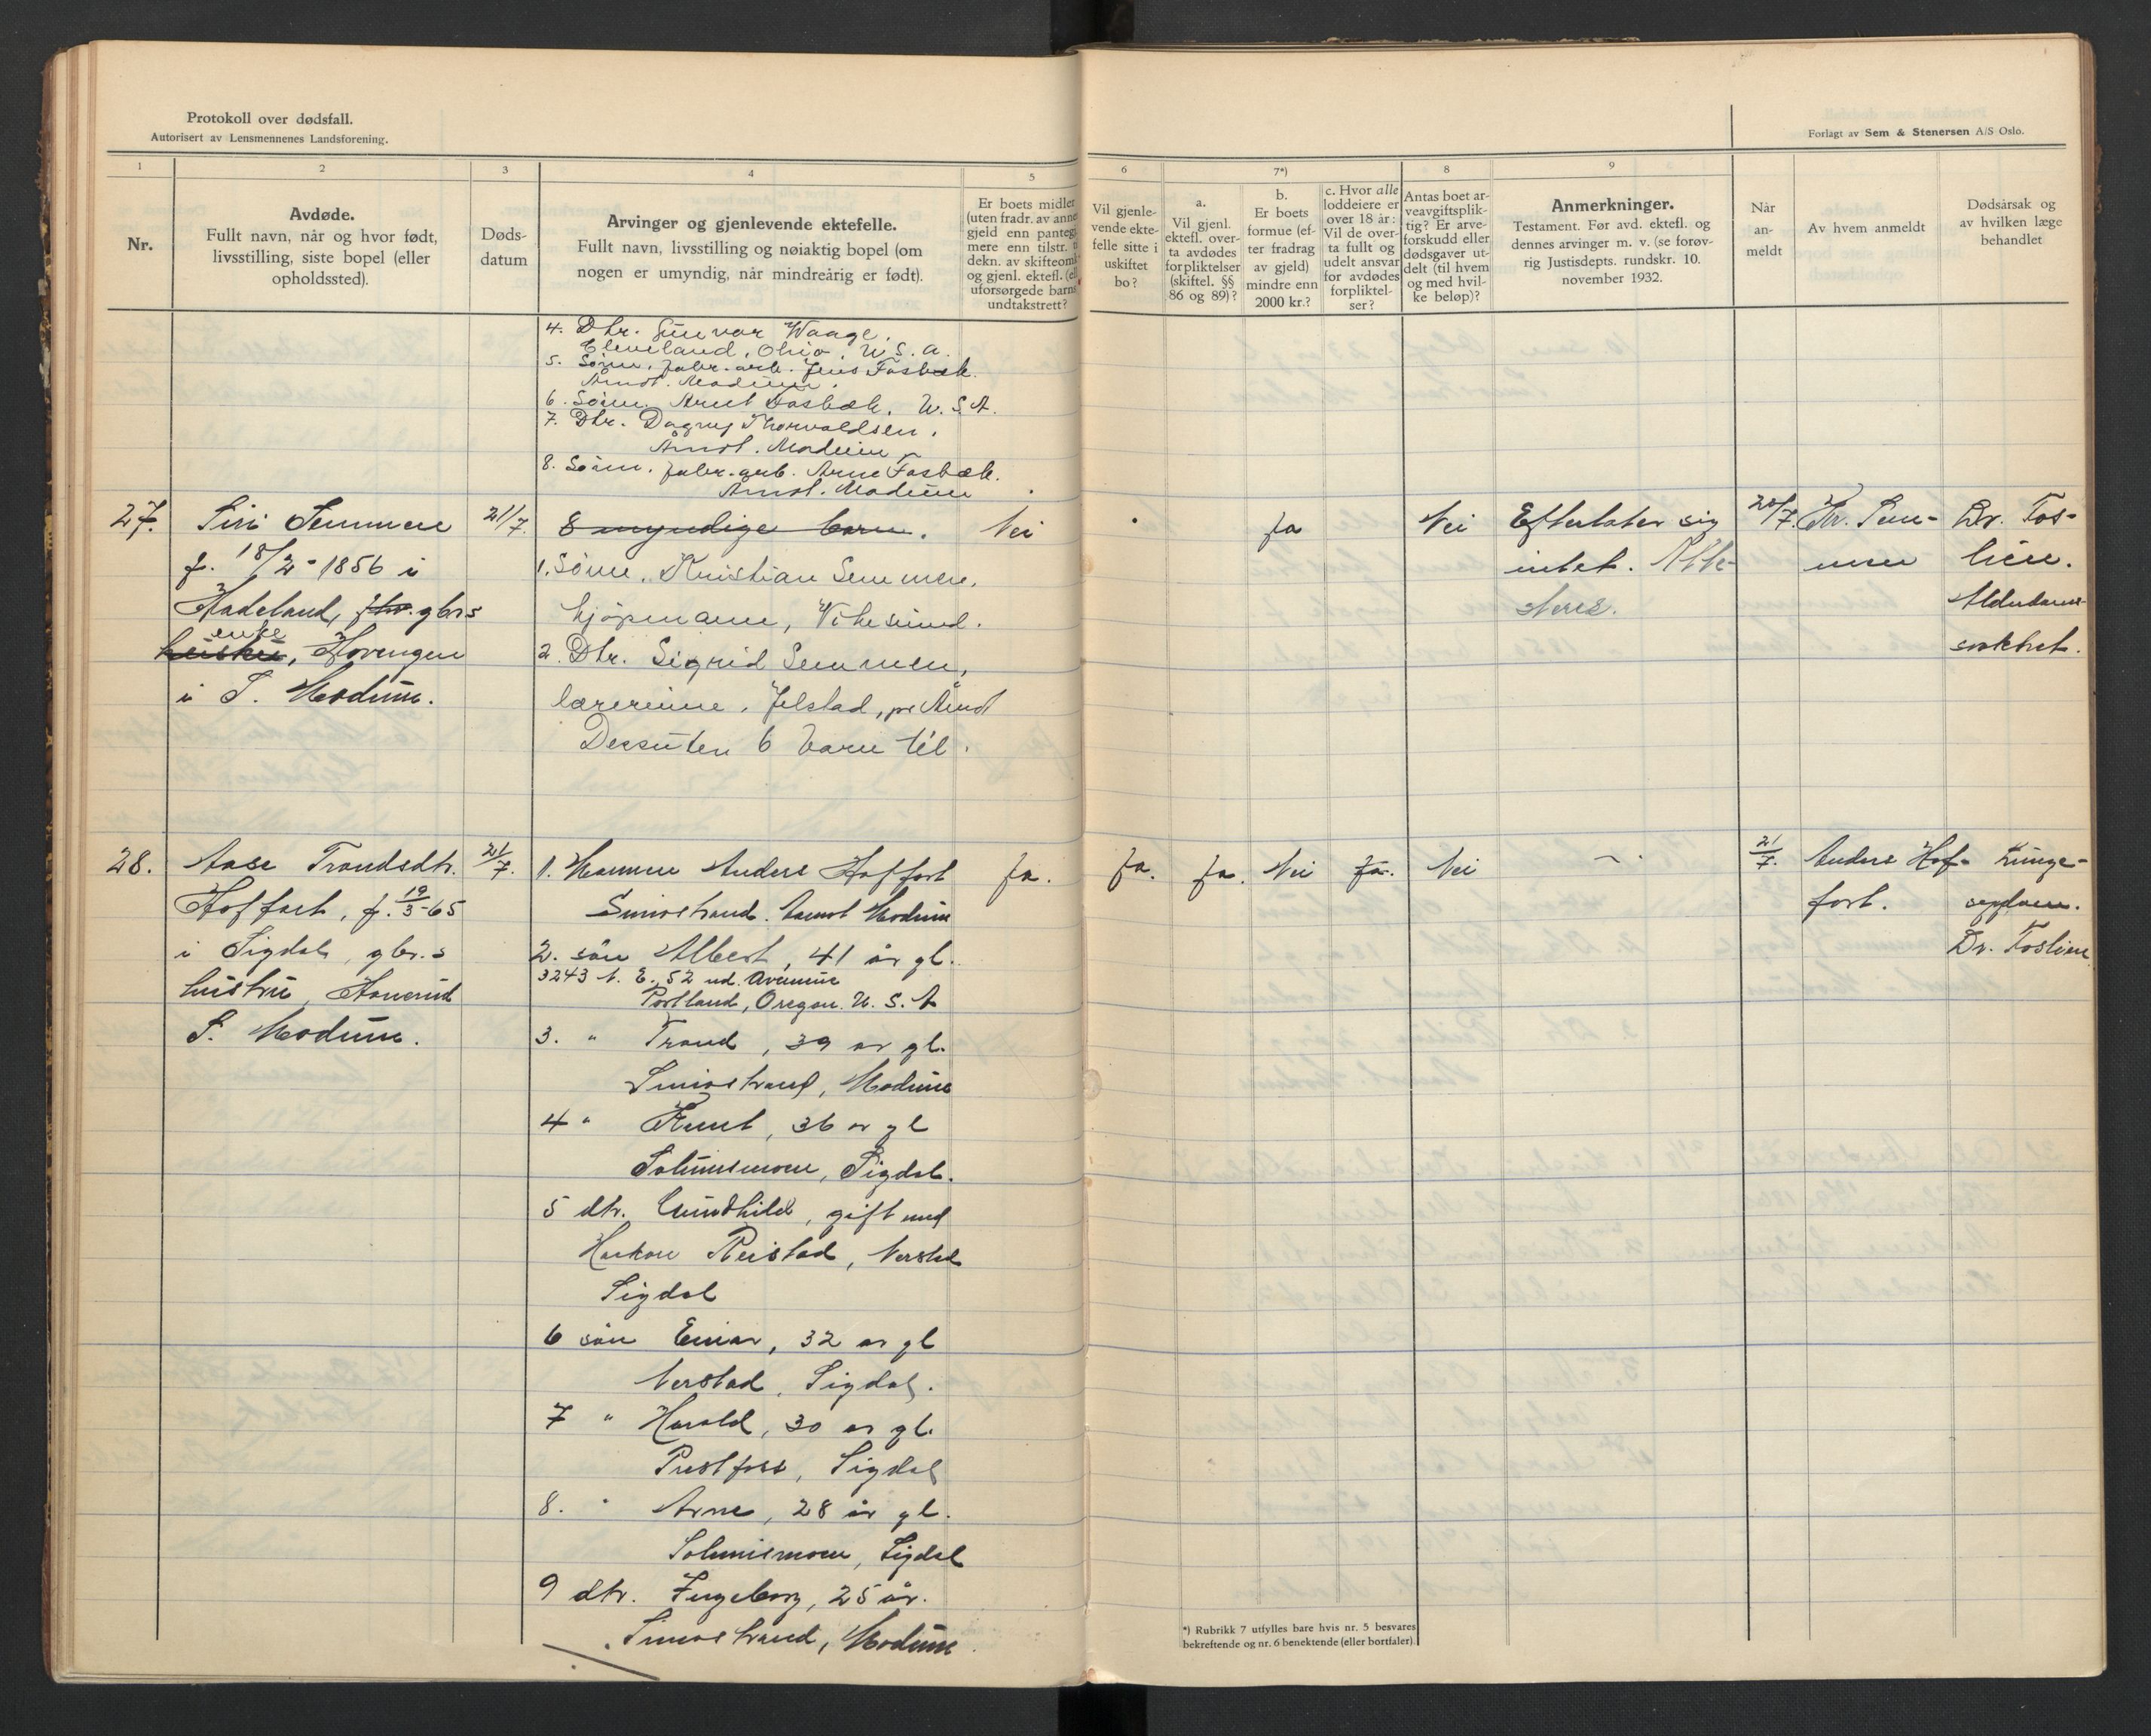 Protokoll over dødsfall.
Autorisert av Lensmennenes Landsforening.
Forlagt av Sem & Stenersen A/S Oslo.
1
2
3
4
5
6
7*)
8
9
Nr.
Avdøde.
Fullt navn, når og hvor født,
livsstilling, siste bopel (eller
opholdssted).
Døds-
datum
Arvinger og gjenlevende ektefelle.
Fullt navn, livsstilling og nøiaktig bopel (om
nogen er umyndig, når mindreårig er født).
Er boets midler
(uten fradr. av anne
gjeld enn pantegj
mere enn tilstr. ti
dekn. av skifteomk
og gjenl. ektefl. (ell
uforsørgede barns
undtakstrett?
Vil gjenle-
vende ekte-
felle sitte i
uskiftet
bo?
a.
Vil gjenl.
ektefl. over-
ta avdødes
forpliktelser
(skiftel. §§
86 og 89)?
b.
Er boets
formue (ef-
ter fradrag
av gjeld)
mindre enn
2000 kr.?
c. Hvor alle
loddeiere er
over 18 år:
Vil de over-
ta fullt og
udelt ansvar
for avdødes
forpliktel-
ser?
Antas boet ar-
veavgiftsplik-
tig? Er arve-
forskudd eller
dødsgaver ut-
delt (til hvem
og med hvil-
ke beløp)?
Anmerkninger.
Testament. Før avd. ektefl. og
dennes arvinger m. v. (se forøv-
rig Justisdepts. rundskr. 10.
november 1932.
Når
an-
meldt
Av hvem anmeldt
Dødsårsak og
av hvilken læge
behandlet
4. Dtr. Gunvor Waage,
Cleveland, Ohio. U. S. A.
5. Sønn, fabr. arb. Jens Fosbæk.
Åmot. Modum.
6. Sønn. Arnt Fosbæk. U. S. A.
7. Dtr. Dagny Thorvaldsen,
Åmot. Modum
8. Sønn. fabr. arb. Arne Fosbæk.
Åmot. Modum
27.
Siri Semmen
f. 18/2-1856 i
Hadeland, gbrs
enke
hustru, Hovengen
i S. Modum.
21/7.
8 myndige barn.
1. Sønn, Kristian Semmen,
kjøpmann, Vikesund.
2. Dtr. Sigrid Semmen,
lærerinne, Jelstad, pr Åmot
Dessuten 6 barn til.
Nei
Ja
Nei
Efterlater sig
intet.
7.
Kr. Sem-
men
Dr. Tos-
lien.
Alderdoms-
svakhet.
28.
Aase Trondsdtr.
Hoffart, f. 19/3-65
i Sigdal, gbr.s
hustru,
S. Modum.
21/7.
1. Mannen Anders Hoffart
Simostrand. Aamot Modum
2. søn Albert, 41 år gl.
3243 N. E., 52 nd. Avenue
Portland, Oregon. U. S. A
3. " Trond, 39 år gl.
Simostrand, Modum
4 " Knut, 36 år gl
Solumsmoen, Sigdal.
5 dtr. Gundhild, gift med
Haakon Reistad, Nerstad
Sigdal
6 søn Einar, 32 år gl
Nerstad, Sigdal.
7 " Harald, 30 år gl.
Prestfoss, Sigdal
8. " Arne, 28 år gl.
Solumsmoen, Sigdal
9 dtr. Ingeborg, 25 år.
Simostrand, Modum.
Ja.
Ja.
Ja.
Nei
Ja.
Nei
21/7.
Anders Hof-
fart.
Lunge-
Dr. Toslien
*) Rubrikk 7 utfylles bare hvis nr. 5 besvares
bekreftende og nr. 6 benektende (eller bortfaler).